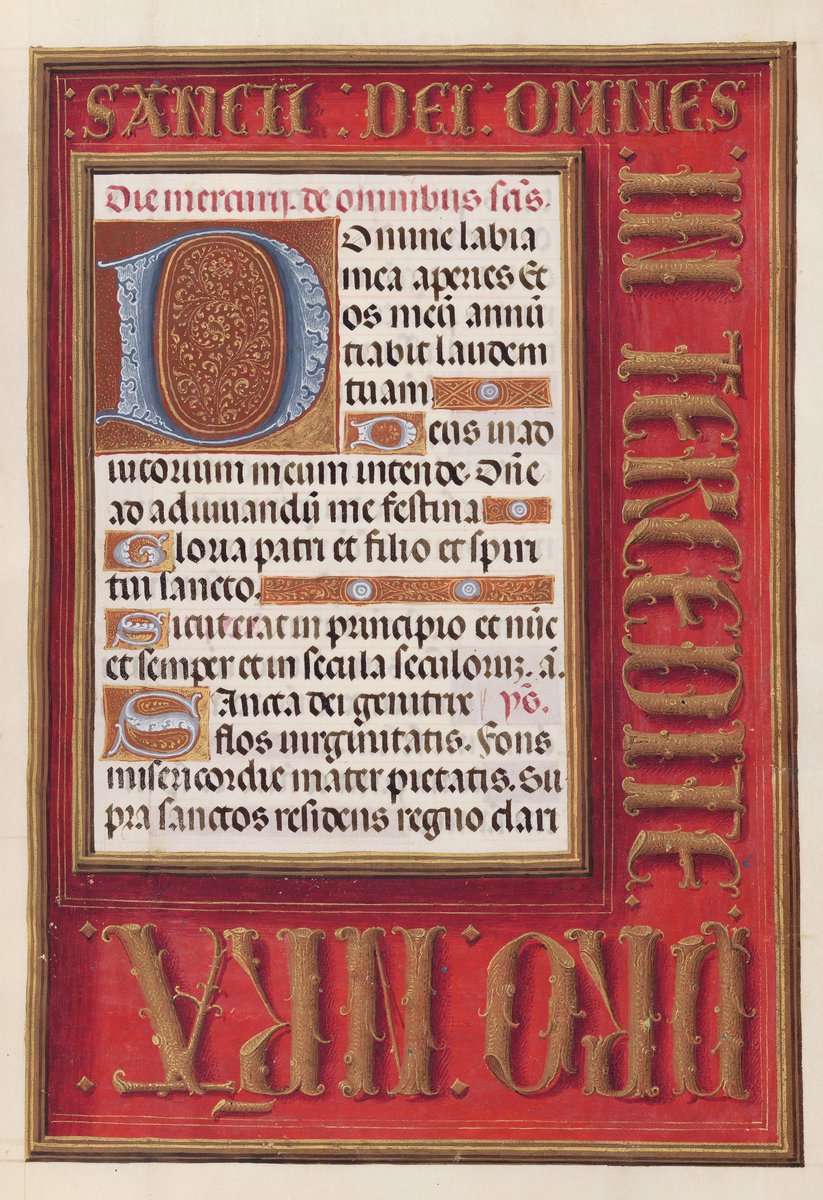 SANCTI · DEI · OMNES
IN TERCEDITE
PRO · NRA
Die mercurij. de omnibus scis.
Domine labia
mea aperies Et
os meū annū
tiabit laudem
tuam.
Deus in ad
iutorium meum intende. Dn̄e
ad adiuuandū me festina
Gloria patri et filio et spiri
tui sancto.
Sicut erat in principio et nūc
et semper et in secula seculoruz. a.
Sancta dei genitrix
flos uirginitatis. Fons
misericordie mater pietatis. Su
pra sanctos residens regno clari